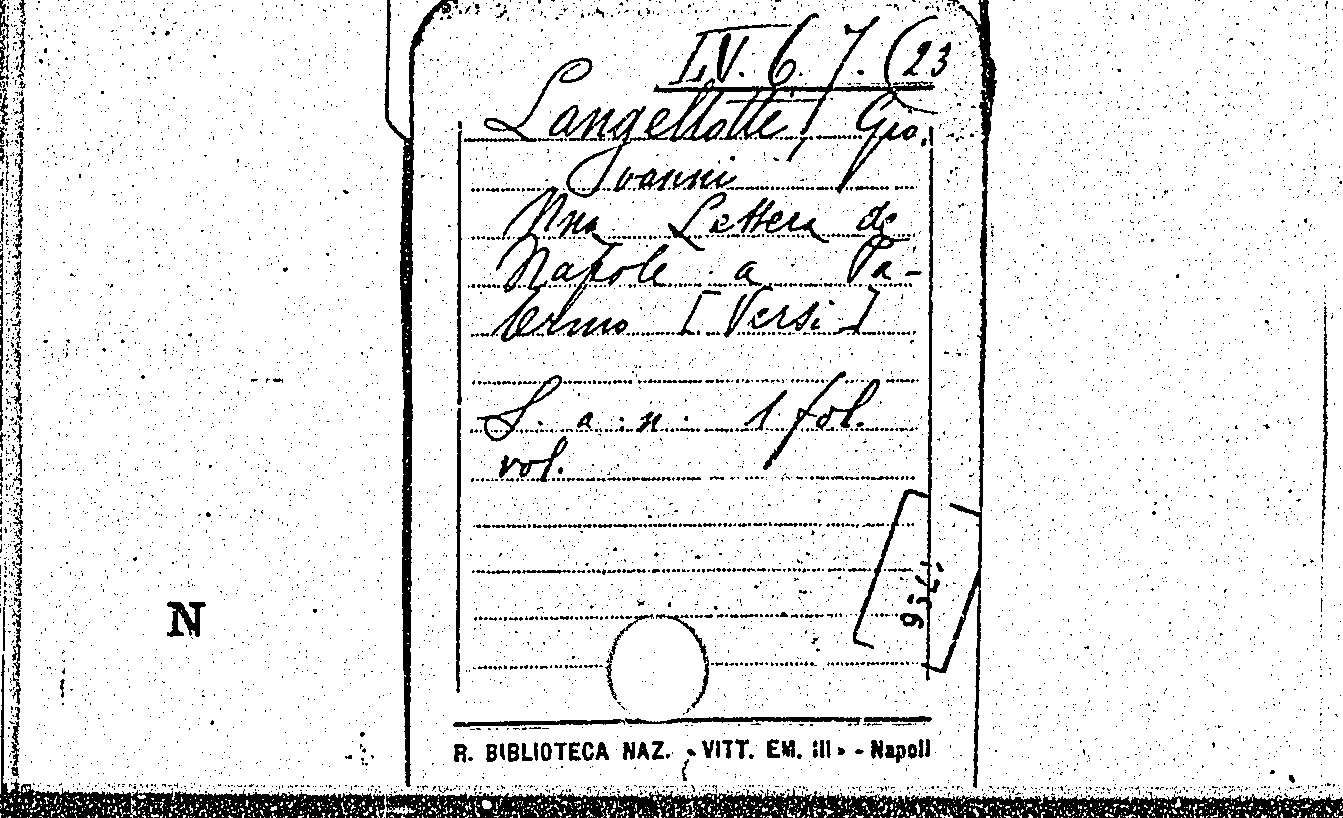 I.V. 6. 7. (23
Langellotti, Gio.
vanni
Una Lettera da
Napole a Pa-
lermo [Versi]
S. a. n. 1 fol.
vol.
N
R. BIBLIOTECA NAZ. « VITT. EM. III » - Napoli